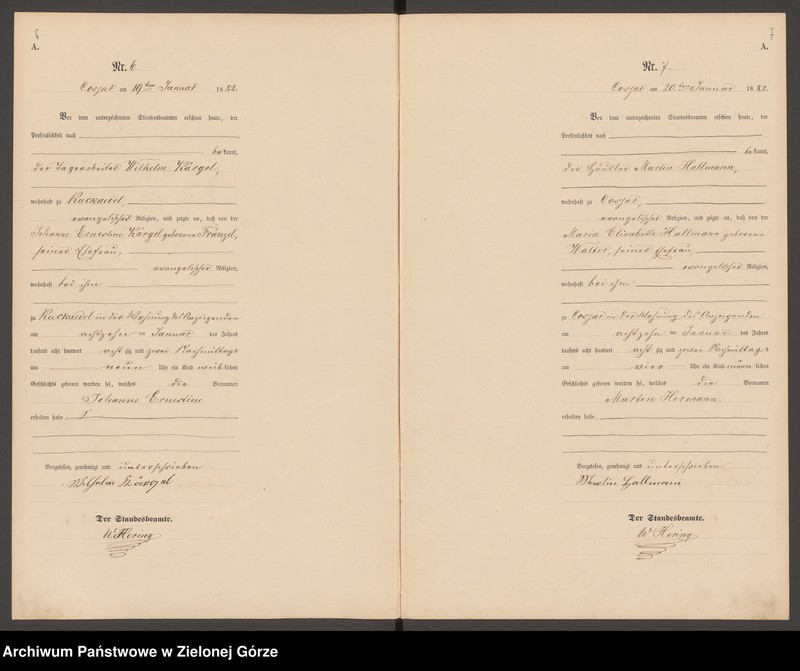 6
A.
Nr. 6.
Cosjar am 19ten Januar 1882.
Vor dem unterzeichneten Standesbeamten erschien heute, der
Persönlichkeit nach
bekannt,
der Tagearbeiter Wilhelm Kärgel,
wohnhaft zu Kuckaedel,
evangelischer Religion, und zeigte an, daß von der
Johanne Ernestine Kärgel geborene Fränzel,
seiner Ehefrau,
evangelischer Religion,
wohnhaft bei ihm
zu Kuckaedel in der Wohnung des Anzeigenden
am achtzehn ten Januar des Jahres
tausend acht hundert acht zig und zwei Nachmittags
um neun Uhr ein Kind weiblichen
Geschlechts geboren worden sei, welches die Vornamen
Johanne Ernestine
erhalten habe
Vorgelesen, genehmigt und unterschrieben
Wilhelm Kärgel
Der Standesbeamte.
W Hering
7
A.
Nr. 7.
Cosjar am 20.ten Januar 1882.
Vor dem unterzeichneten Standesbeamten erschien heute, der
Persönlichkeit nach
bekannt,
der Häusler Martin Hallmann,
wohnhaft zu Cosjar,
evangelischer Religion, und zeigte an, daß von der
Maria Elisabeth Hallmann geborene
Walter, seiner Ehefrau,
evangelischer Religion,
wohnhaft bei ihm
zu Cosjar in der Wohnung des Anzeigenden
am achtzehn ten Januar des Jahres
tausend acht hundert acht zig und zwei Nachmittags
um vier Uhr ein Kind männlichen
Geschlechts geboren worden sei, welches die Vornamen
Martin Hermann
erhalten habe
Vorgelesen, genehmigt und unterschrieben
Martin Hallmann
Der Standesbeamte.
W Hering
Archiwum Państwowe w Zielonej Górze